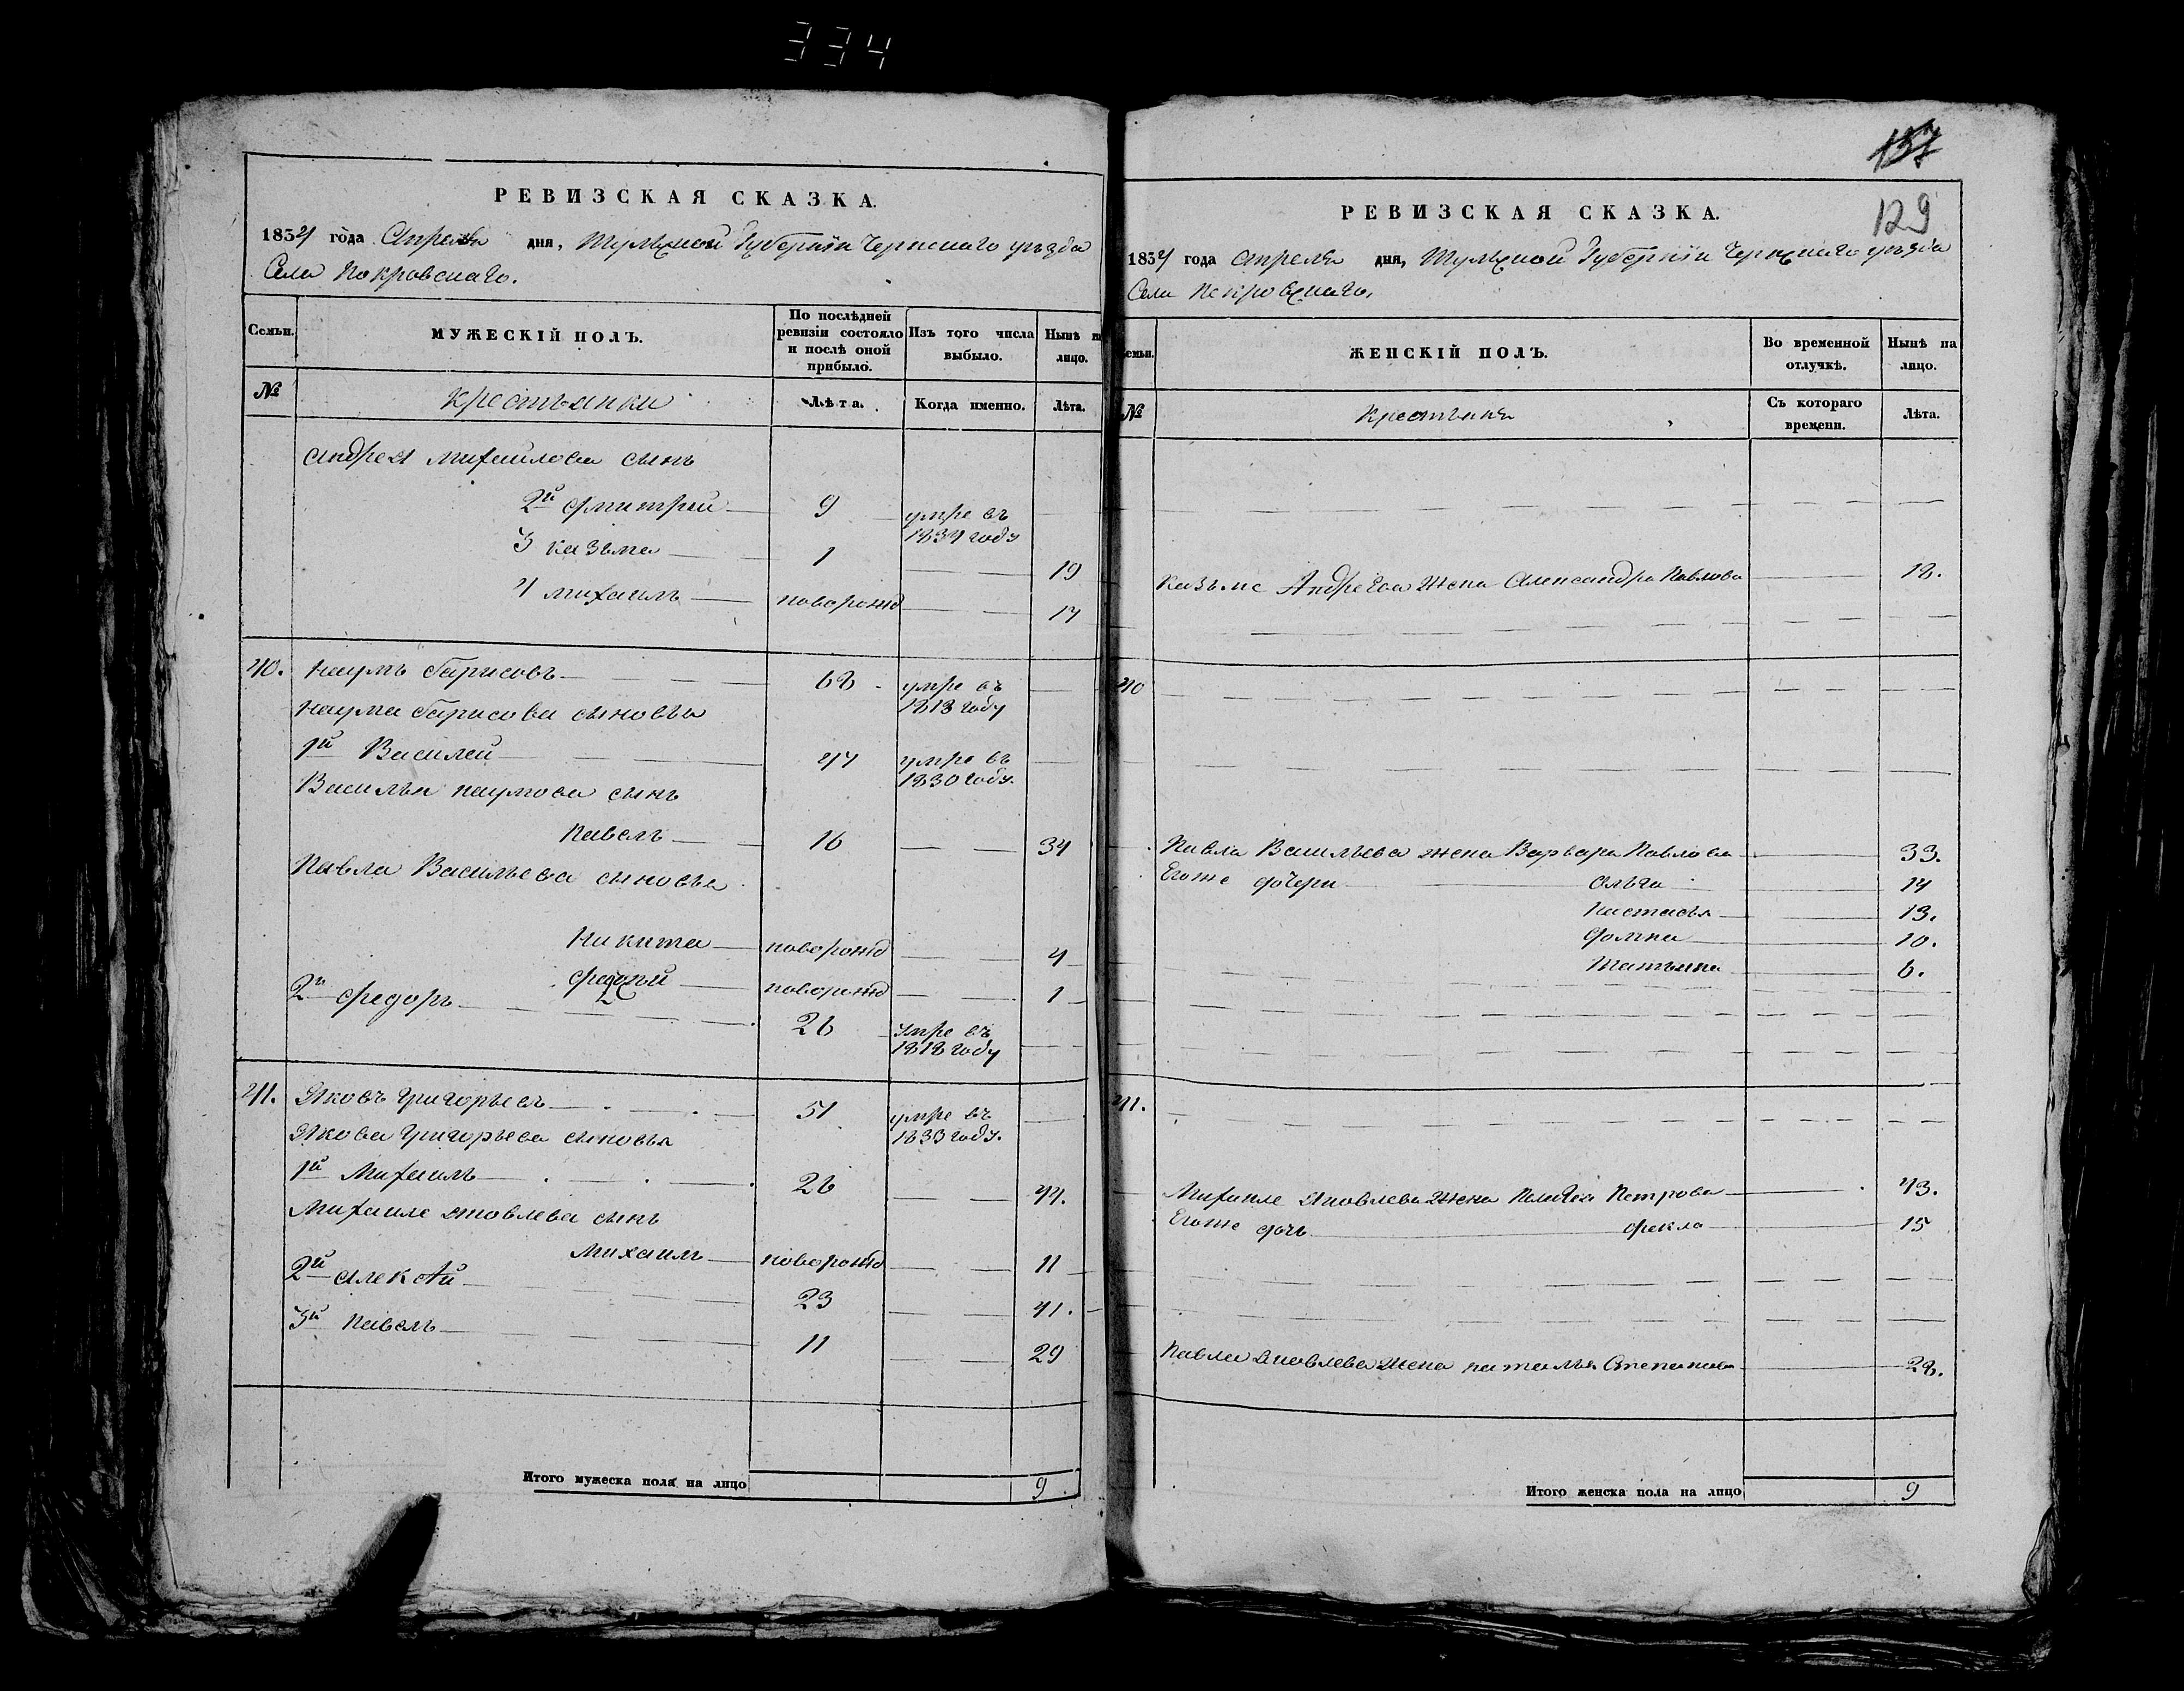 334
РЕВИЗСКАЯ СКАЗКА.
1834 года Апреля дня, Тульской Губернiи Чернскаго уѣзда
Села Покровскаго.
Семьи.
МУЖЕСКIЙ ПОЛЪ.
По послѣдней ревизiи состояло и послѣ оной прибыло.
Изъ того числа выбыло.
Нынѣ на лицо.
№
Крестьянки
Лѣта.
Когда именно.
Лѣта.
Андрея Михайлова сынъ
2й Дмитрий 9 умре въ 1834 году
3 Казьма 1 19
4 Михаилъ новорожд 17
40. Наумъ Барисовъ 68 умре въ 1818 году
Наума Барисова сыновья
1й Василей 47 умре въ 1830 году.
Василья Наумова сынъ
Павелъ 16 34
Павла Васильева сыновья
Никита новорожд 4
новорожд 1
2й Федоръ 26 умре въ 1818 году
41. Яковъ Григорьевъ 51 умре въ 1833 году.
Якова Григорьева сыновья
1й Михаилъ 26 44.
Михаиле Яковлева сынъ
Михаилъ новорожд 11
2й Алексѣй 23 41.
3й Павелъ 11 29
Итого мужеска пола на лицо 9
137
129
РЕВИЗСКАЯ СКАЗКА.
1834 года Апреля дня, Тульской Губернiи Чернскаго уѣзда
Села Покровскаго,
Семьи.
ЖЕНСКIЙ ПОЛЪ.
Во временной отлучкѣ.
Нынѣ на лицо.
№
Крестьяня
Съ котораго времени.
Лѣта.
Казьме Андреева жена Александра Павлова 18.
40
Павла Васильева жена Варвара Павлова 33.
Егоже дочери Ольга 14
Настасья 13.
Домна 10.
Татьяна 6.
41.
Михаиле Яковлева жена Пелагея Петрова 43.
Егоже дочь Фекла 15
Павла Яковлева жена Наталья Степанова 28.
Итого женска пола на лицо 9